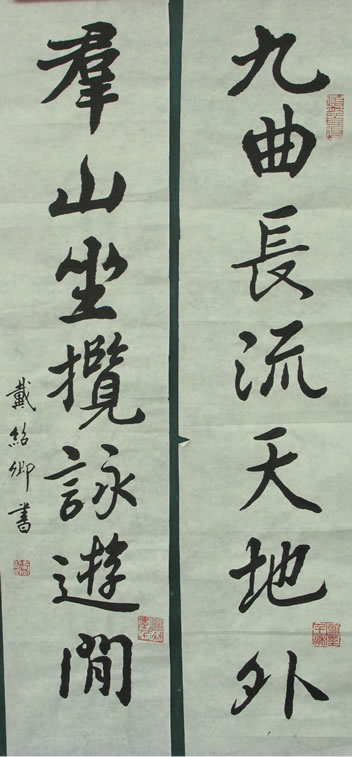 九曲長流天地外
羣山坐攬詠遊間
戴紹卿書